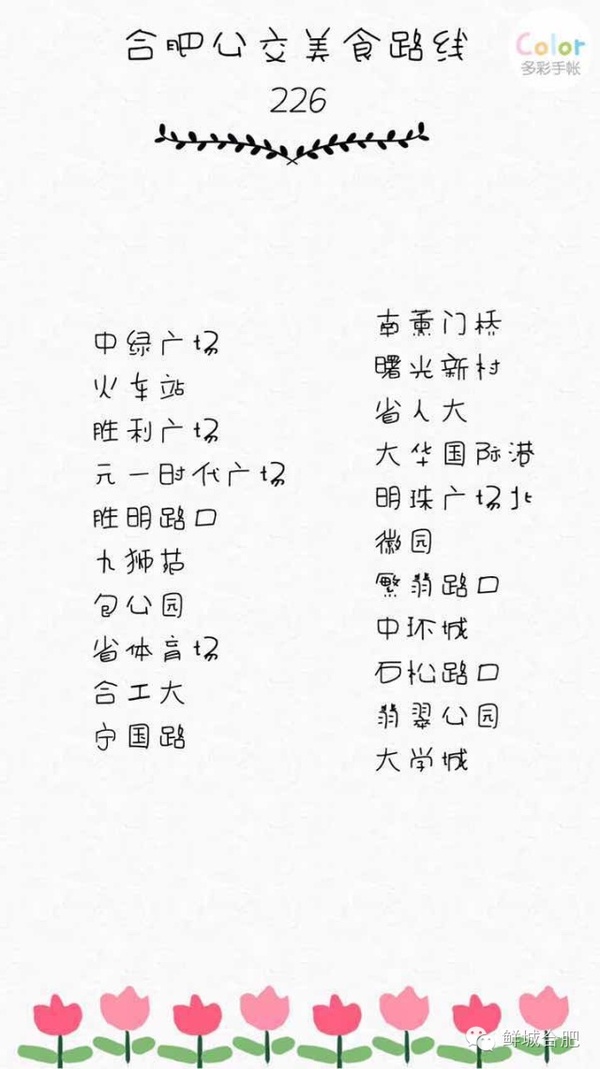 合肥公交美食路线
226
Color
多彩手帐
中绿广场
火车站
胜利广场
元一时代广场
胜明路口
九狮苑
包公园
省体育场
合工大
宁国路
南薰门桥
曙光新村
省人大
大华国际港
明珠广场北
徽园
繁翡路口
中环城
石松路口
翡翠公园
大学城
鲜城合肥